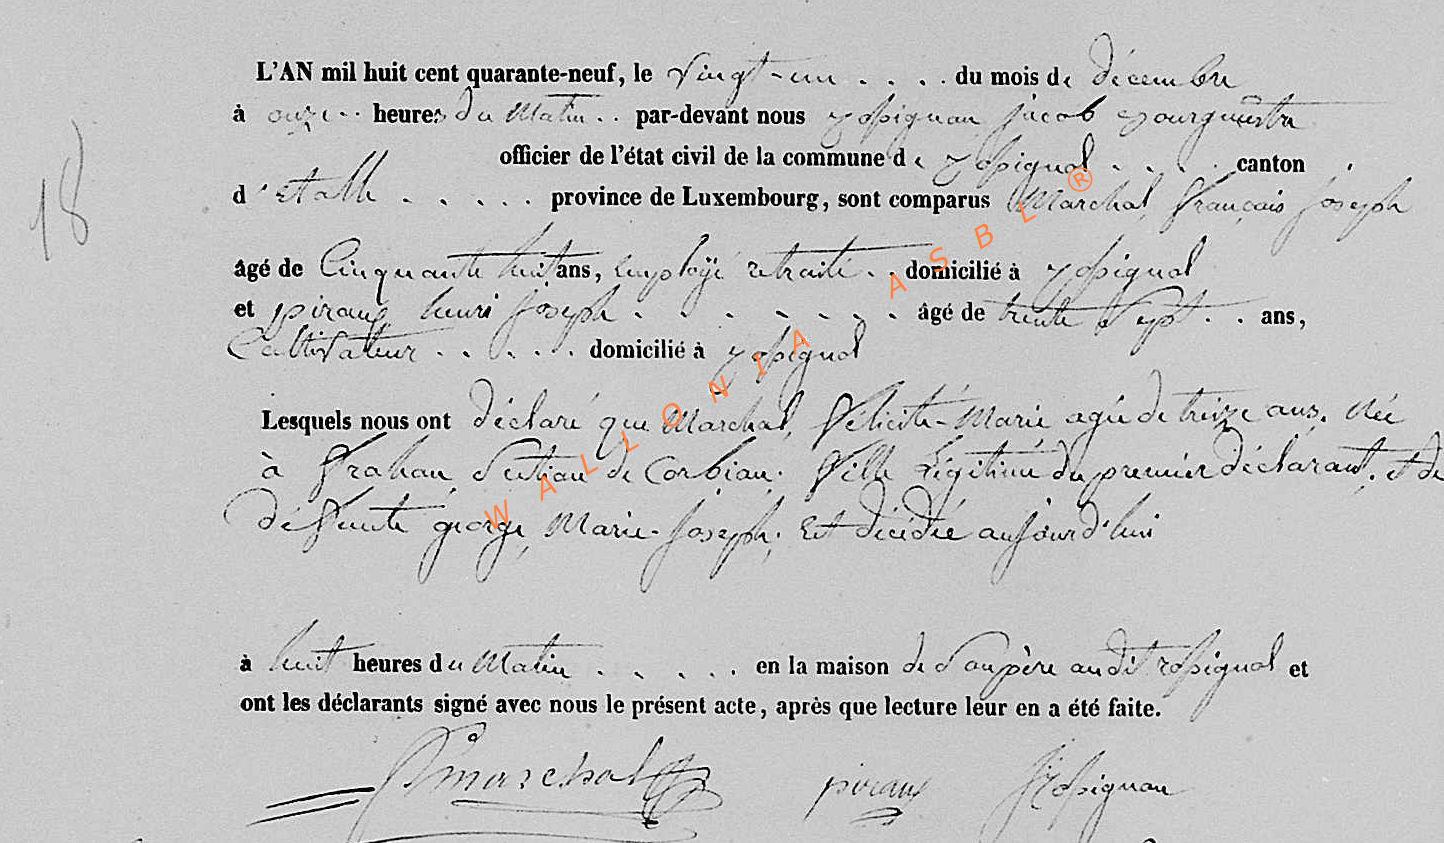 L'AN mil huit cent quarante-neuf, le vingt-un .... du mois de décembre
à onze .. heures du Matin .. par-devant nous rossignon jacob bourguestre
officier de l'état civil de la commune de rossignol .... canton
d'Etalle ..... province de Luxembourg, sont comparus Marchal, françois joseph
18
âgé de Cinquante huit ans, Employé retraité .. domicilié à rossignol
et piraux henri joseph ....... âgé de trente sept .. ans,
Cultivateur ..... domicilié à rossignol
Lesquels nous ont déclaré que Marchal, félicité-Marie agée de treize ans. Née
à frahan, section de Corbion. fille Légitime du premier déclarant, et de
défunte george, Marie-joseph; Est décédée aujourd'hui
à huit heures du Matin ..... en la maison de son père au dit rossignol et
ont les déclarants signé avec nous le présent acte, après que lecture leur en a été faite.
Marchal piraux Rossignon
WALLONIA ASBL ®